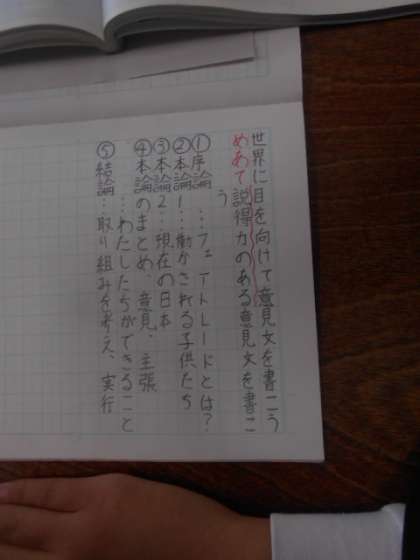 世界に目を向けて意見文を書こう
めあて説得力のある意見文を書こ
う
①序論…フェアトレードとは?
②本論1…働かされる子供たち
③本論2…現在の日本
④本論のまとめ、意見、主張
…わたしたちができること
⑤結論…取り組みを考え、実行